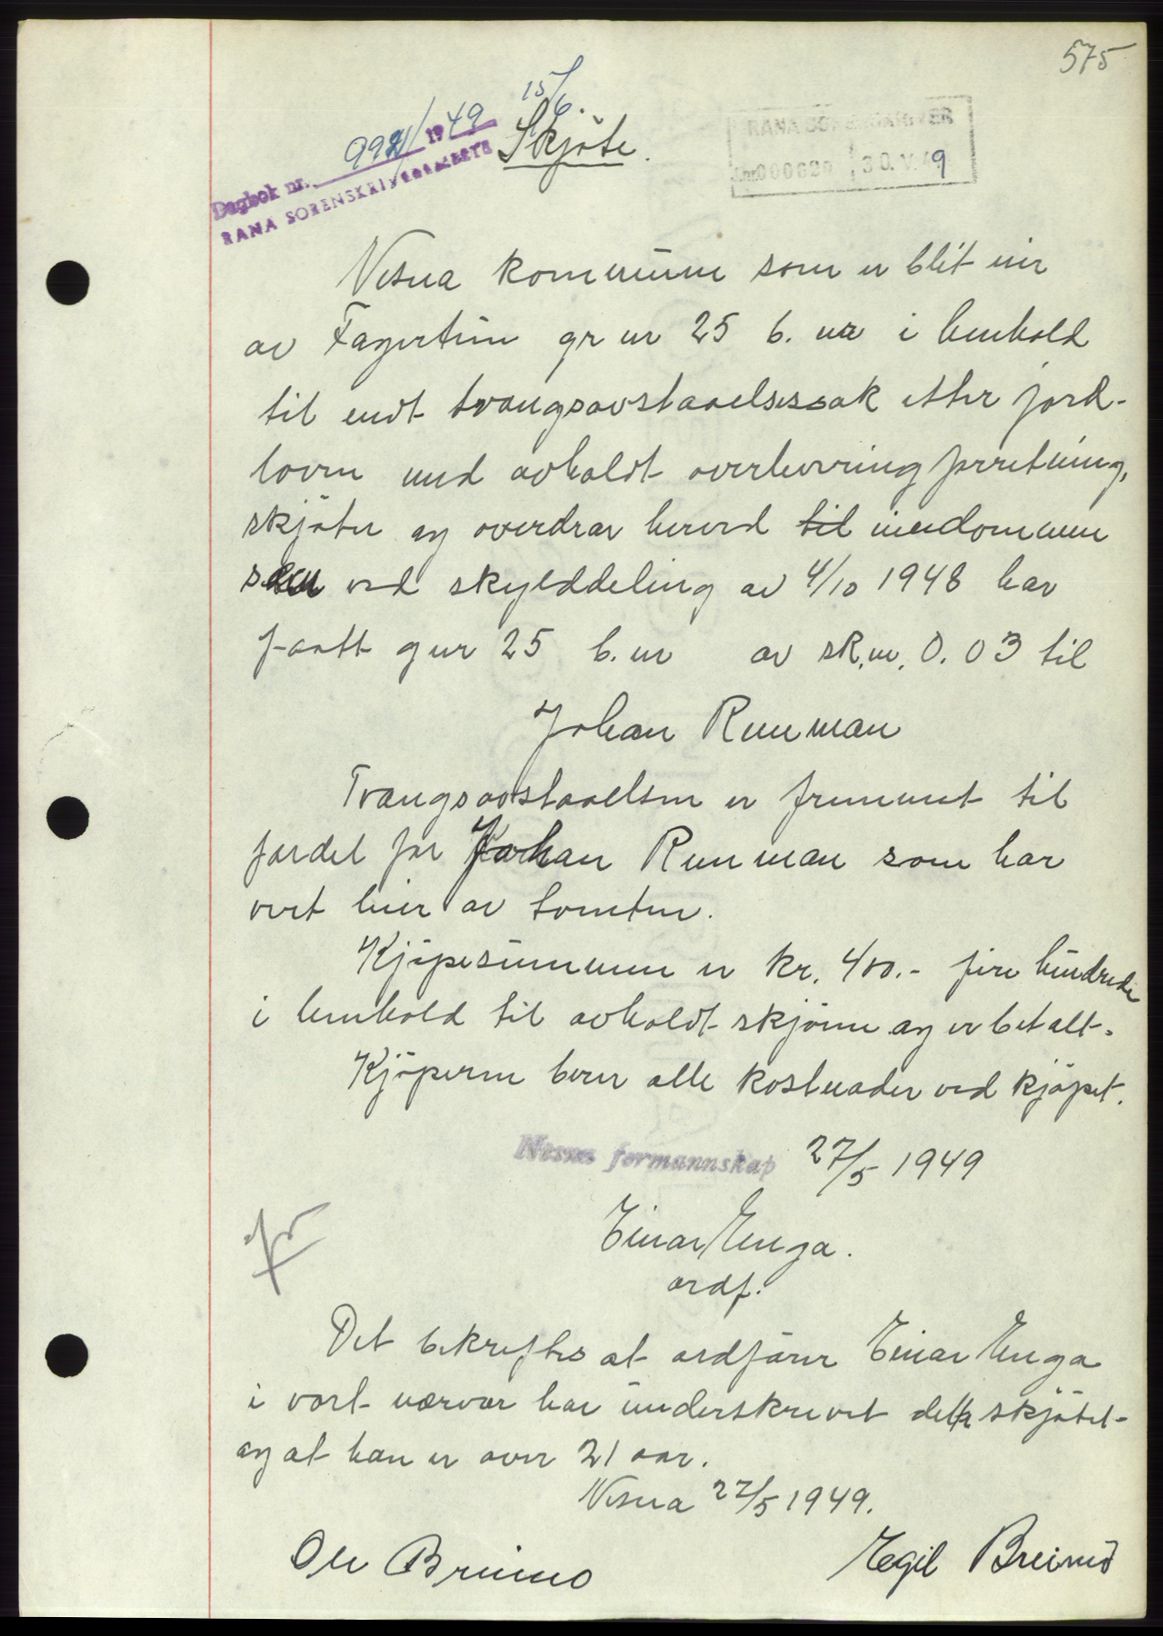 575
15/6
Skjöte.
Dagbok nr. 992/1949
RANA SORENSKRIVEREMBETE
RANA SORENSKRIVER
30. V. 49
Nesna kommune som er blit eier
av Fagertun gr nr 25 b. nr i henhold
til endt tvangsavstaaelsessak etter jord-
loven med avholdt overhevning forretning,
skjöter og overdrar herved til eiendommen
som ved skylddeling av 4/10 1948 har
faatt gnr 25 b. nr av sk.m. 0.03 til
Johan Runman
Tvangsavstaaelsen er fremmet til
fordel for Johan Runman som har
vert leier av tomten.
Kjöpesummen er kr. 400.- fire hundrede
i henhold til avholdt skjönn og er betalt.
Kjöperen berer alle kostnader ved kjöpet.
Nesna formannskap 27/5 1949
Einar Enga.
ordf.
Det bekreftes at ordförer Einar Enga
i vort nærvær har underskrevet dette skjötet
og at han er over 21 aar.
Nesna 27/5 1949.
Ole Breimo
Egil Breimo